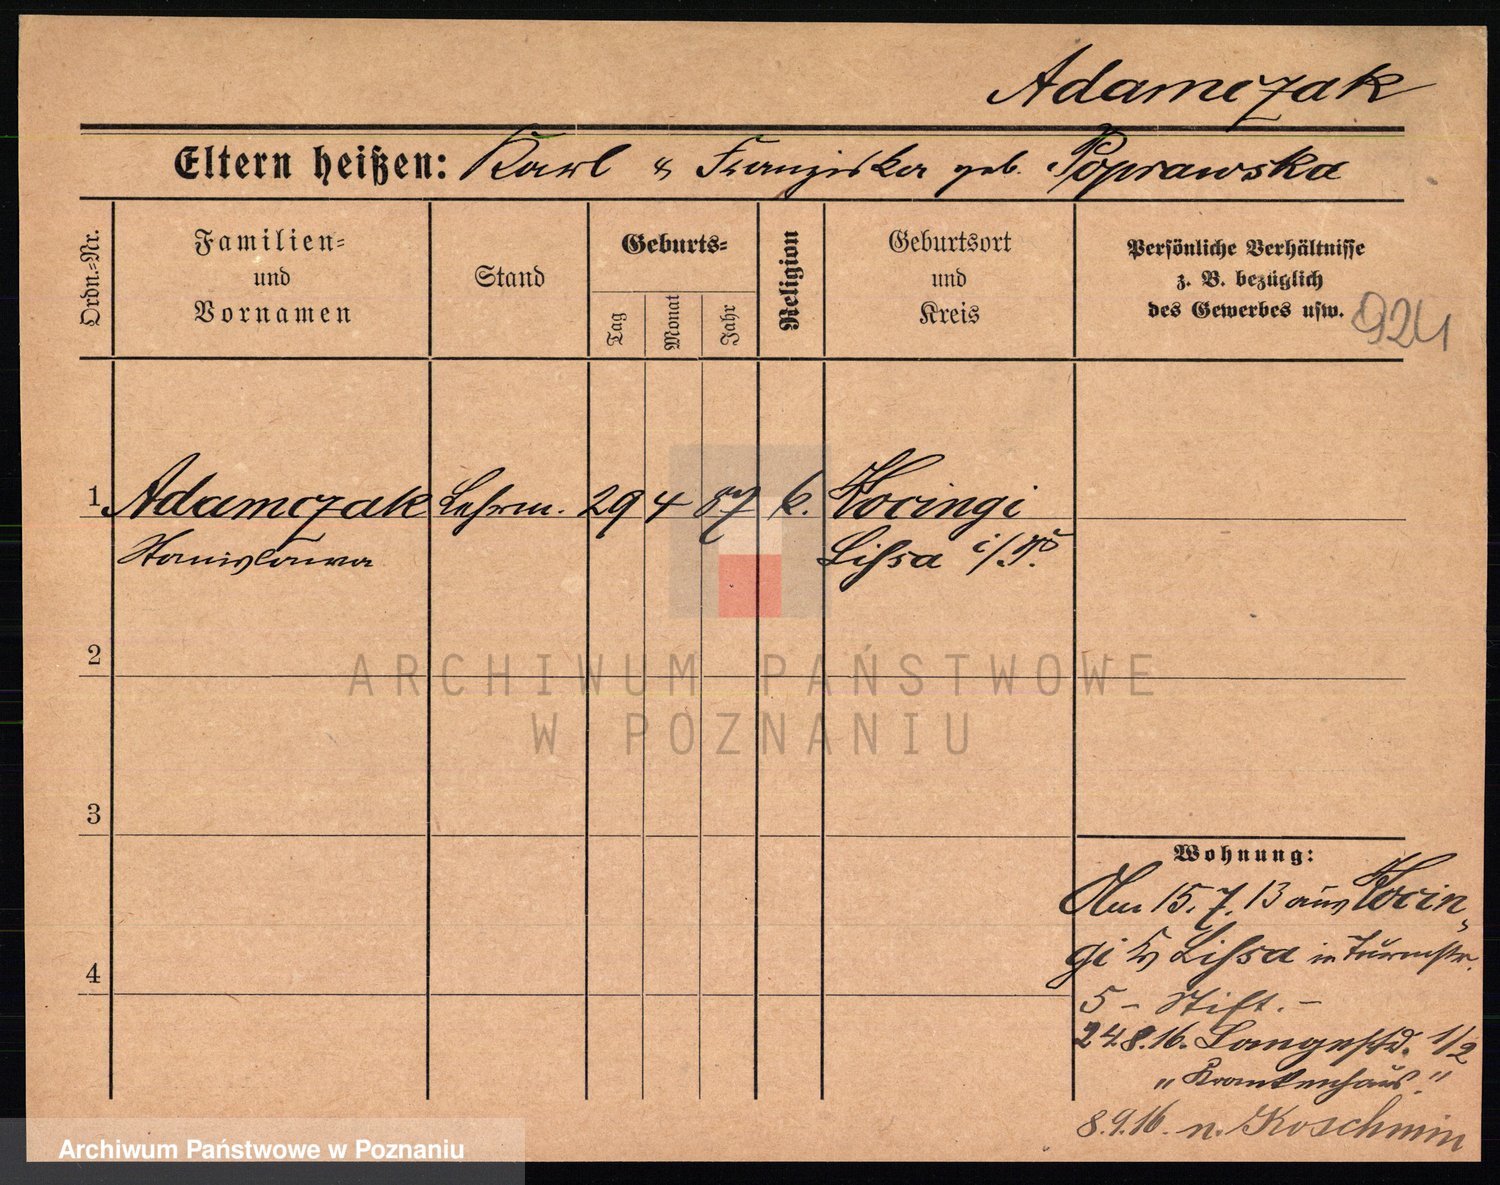 Adamczak
Eltern heißen: Karl & Franziska geb. Poprawska
Ordn.=Nr.
Familien=
und
Vornamen
Stand
Geburts=
Tag
Monat
Jahr
Religion
Geburtsort
und
Kreis
Persönliche Verhältnisse
z. B. bezüglich
des Gewerbes usw.
924
1 Adamczak Lehrin. 29 4 87 k. Kocingi
Stanislawa Lissa i/P.
2
ARCHIWUM PAŃSTWOWE
W POZNANIU
3
Wohnung:
Am 15.7.13 aus Kocin
gi Kr Lissa in Turmstr.
4
5 - Stift. -
24.8.16. Langestr. 1/2
"Krankenhaus."
8.9.16. n. Koschmin
Archiwum Państwowe w Poznaniu